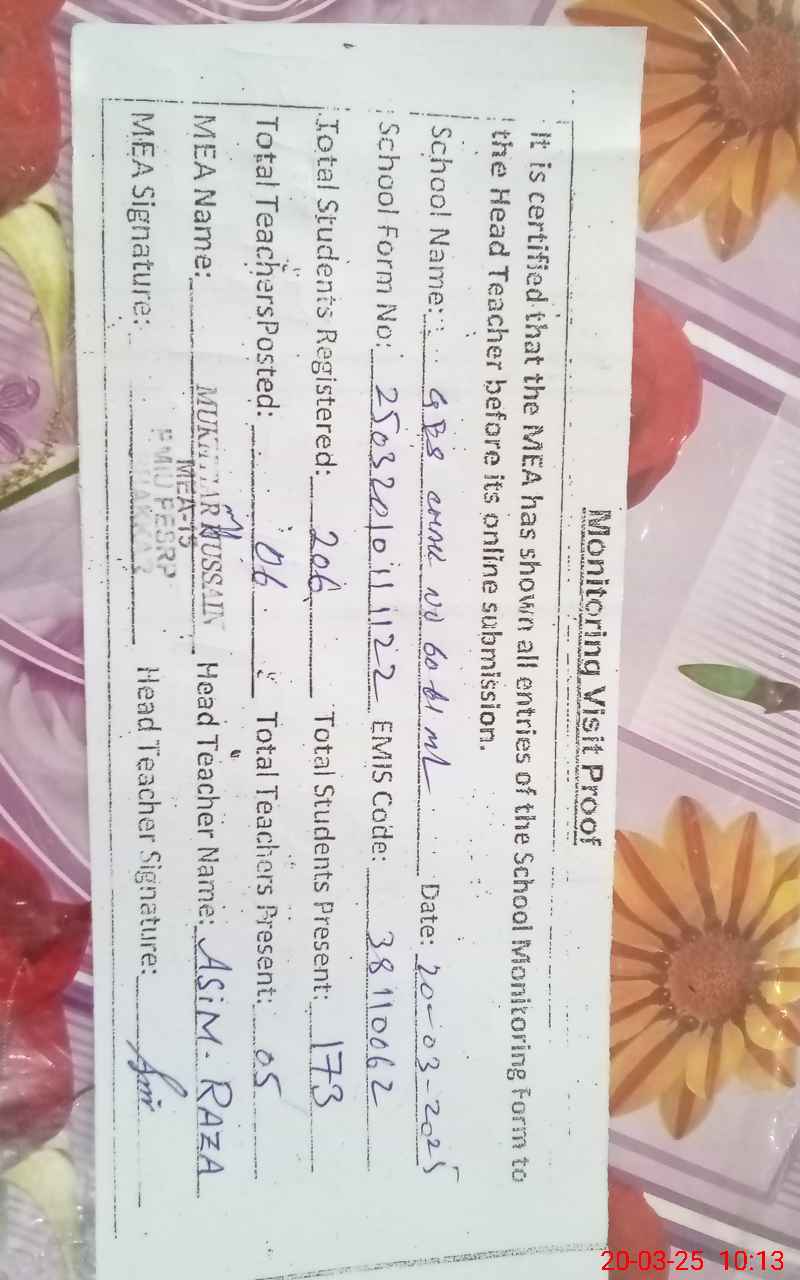 Monitoring Visit Proof
It is certified that the MEA has shown all entries of the School Monitoring Form to
the Head Teacher before its online submission.
School Name: GBS NO 60 ML Date: 20-03-2025
School Form No: 25032010111122 EMIS Code: 38110062
Total Students Registered: 206 Total Students Present: 173
Total Teachers Posted: 06 Total Teachers Present: 05
MEA Name: MUKHTAR HUSSAIN Head Teacher Name: ASiM. RAZA
MEA-15
MEA Signature: Head Teacher Signature:
PMIU PESRP
20-03-25 10:13